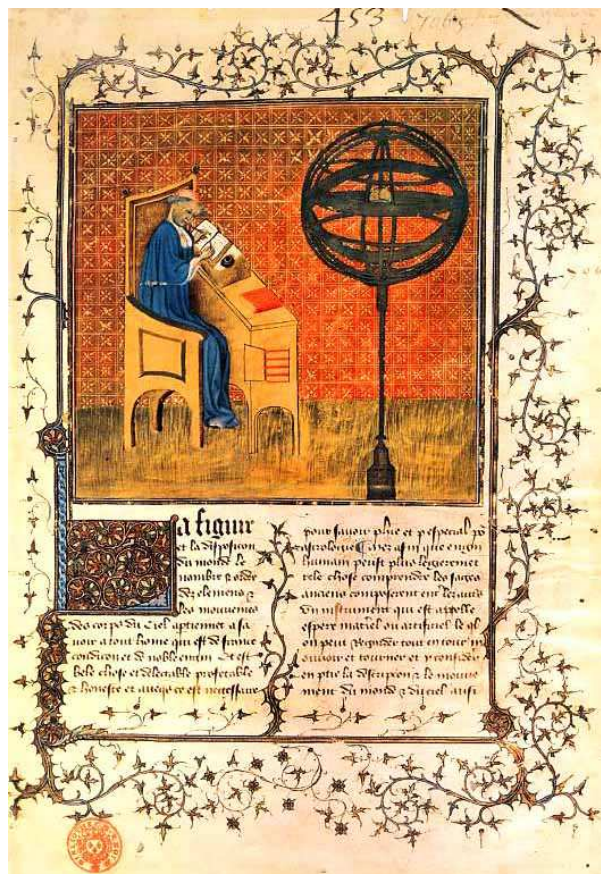 453
7065
La figure
et la disposicion
du monde le
nombre et ordre
des elemens et
les mouvemens
des corps du ciel aptiennet a sa
voir a tout home qui est de france
condicion et de noble engin Et est
bele chose et delectable profetable
et honeste et avecqs ce est necessaire
pour savoir phie et p especial po
astrologie Et hers afin que engin
humain peust plus legierement
tele chose comprendre les sages
anciens composerent
un instrument qui est appelle
espere materiel ou artificiel le ql
on peut regarder tout entour
mouvoir et tourner et y considerer
en ptie la descripcion et le mouve
ment du monde et du ciel ausi